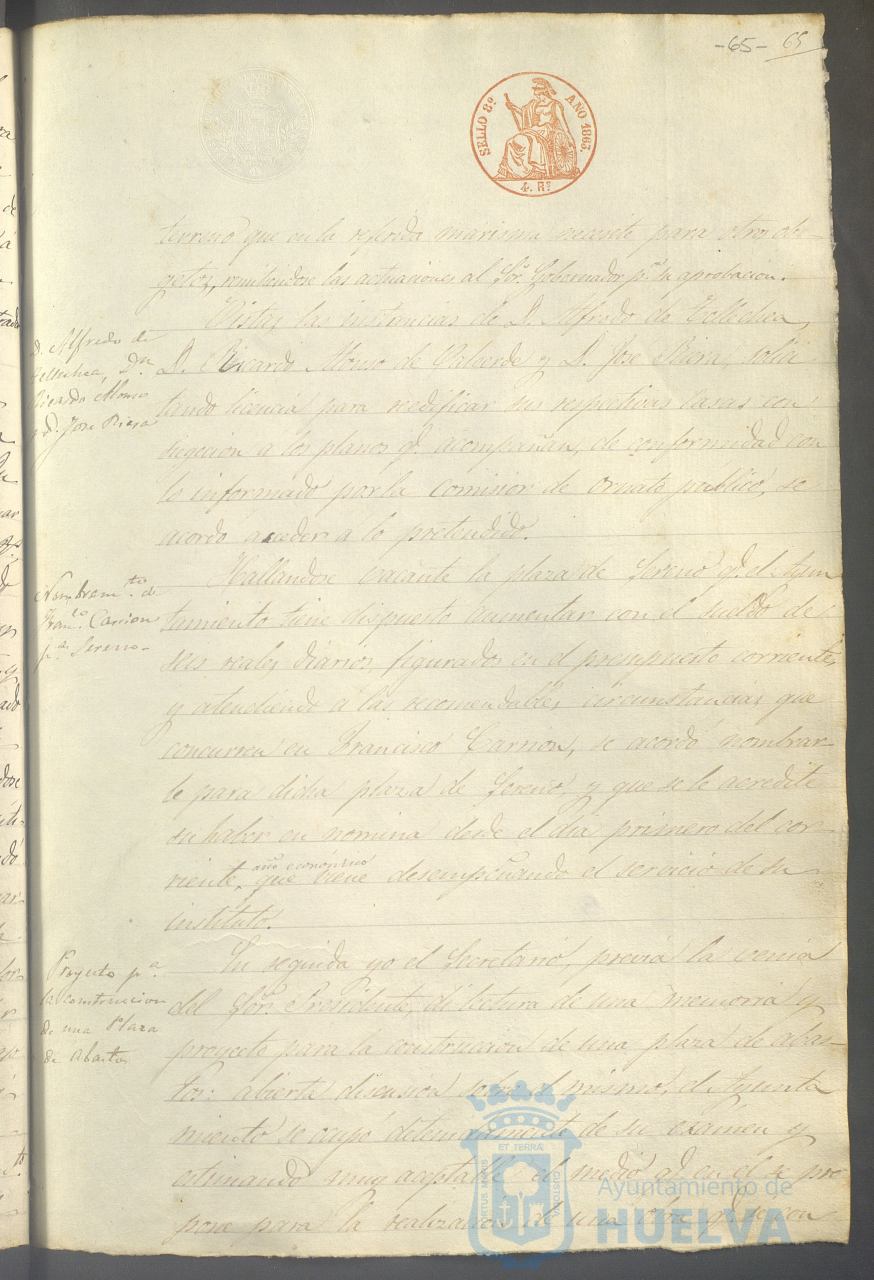 -65- 65
SELLO 8º AÑO 1863.
4. Rs
terreno que en la referida marisma necesite para otros ob-
getos, remitiendose las actuaciones al Sor. Gobernador pa. su aprobacion.
D. Alfredo de
Tellechea, Dn
Ricardo Alonso
y D. Jose Riera
Vistas las instancias de D. Alfredo de Tellechea,
D. Ricardo Alonso de Valverde y D. José Riera, solici
tando licencia para reedificar sus respectivas casas con
sugecion a los planos q. acompañan, de conformidad con
lo informado por la comision de ornato público, se
acordo acceder a lo pretendido.
Nombramto. de
Franco. Carrion
pa. Sereno-
Hallandose vacante la plaza de Sereno q. el Ayun
tamiento tiene dispuesto aumentar con el sueldo de
seis reales diarios, figurados en el presupuesto corriente,
y atendiendo á las recomendables circunstancias que
concurren en Francisco Carrion, se acordó nombrar
le para dicha plaza de Sereno, y que se le acredite
su haber en nomina desde el dia primero del cor-
riente año económico, que viene desempeñando el servicio de su
instituto.
Proyecto pa.
la construccion
de una Plaza
de Abastos
En seguida yo el Secretario, previa la venia
del Sor. Presidente, di lectura de una memoria y
proyecto para la construccion de una plaza de abas-
tos: abierta discusion sobre el mismo, el Ayunta
miento se ocupó detenidamente de su examen y
estimando muy aceptable el medio q. en el se pro
pone para la realizacion de una obra q.
ET TERRÆ
PORTUS MARIS
CUSTODIA
Ayuntamiento de
HUELVA